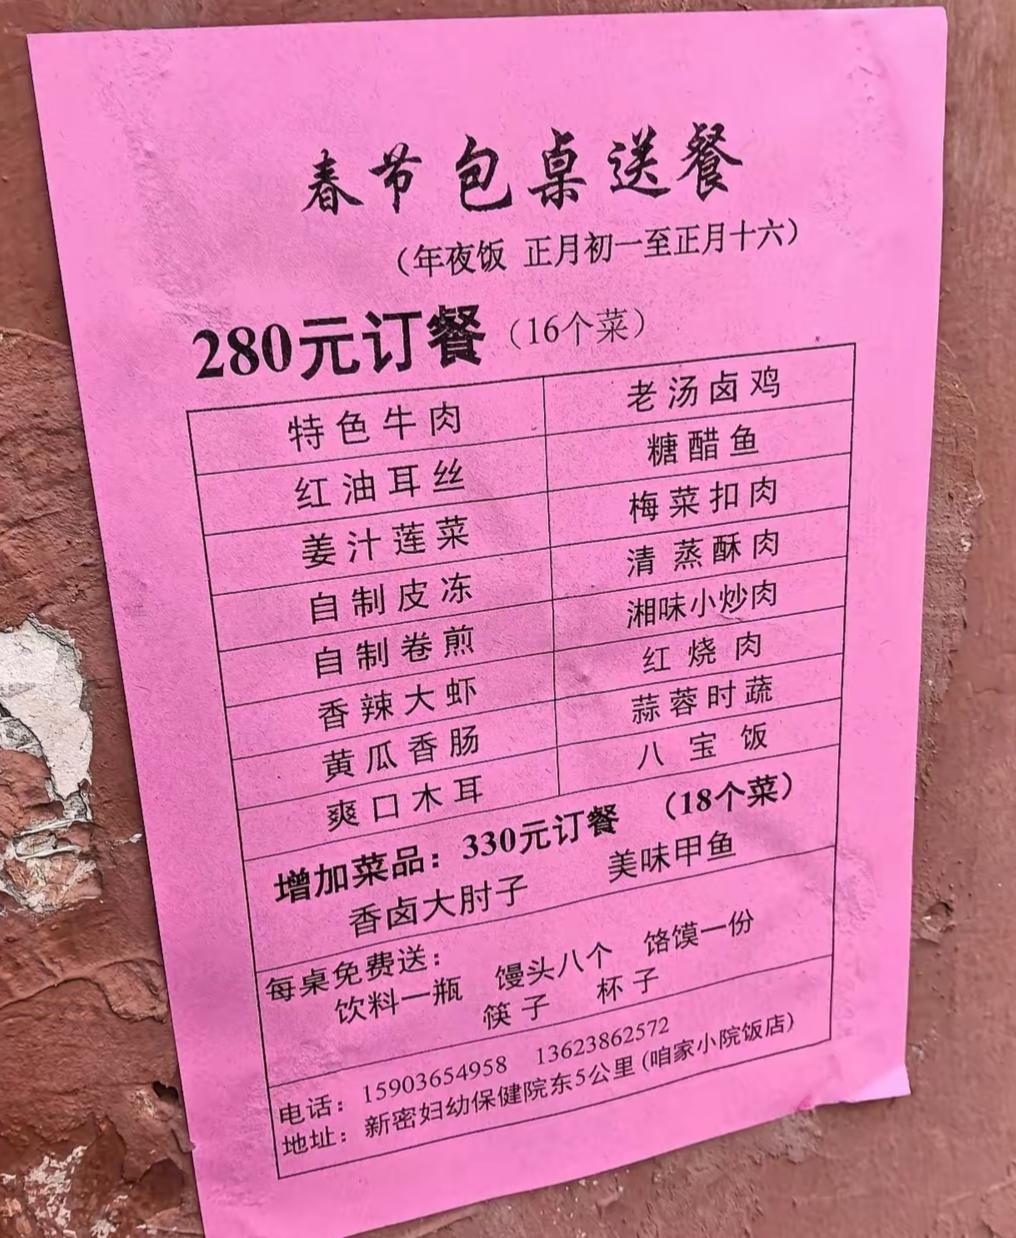 春节包桌送餐
（年夜饭 正月初一至正月十六）
280元订餐（16个菜）
特色牛肉 老汤卤鸡
红油耳丝 糖醋鱼
姜汁莲菜 梅菜扣肉
自制皮冻 清蒸酥肉
自制卷煎 湘味小炒肉
香辣大虾 红烧肉
黄瓜香肠 蒜蓉时蔬
爽口木耳 八宝饭
增加菜品：330元订餐 （18个菜）
香卤大肘子 美味甲鱼
每桌免费送：
饮料一瓶 馒头八个 饹馍一份
筷子 杯子
电话：15903654958 13623862572
地址：新密妇幼保健院东5公里(咱家小院饭店)